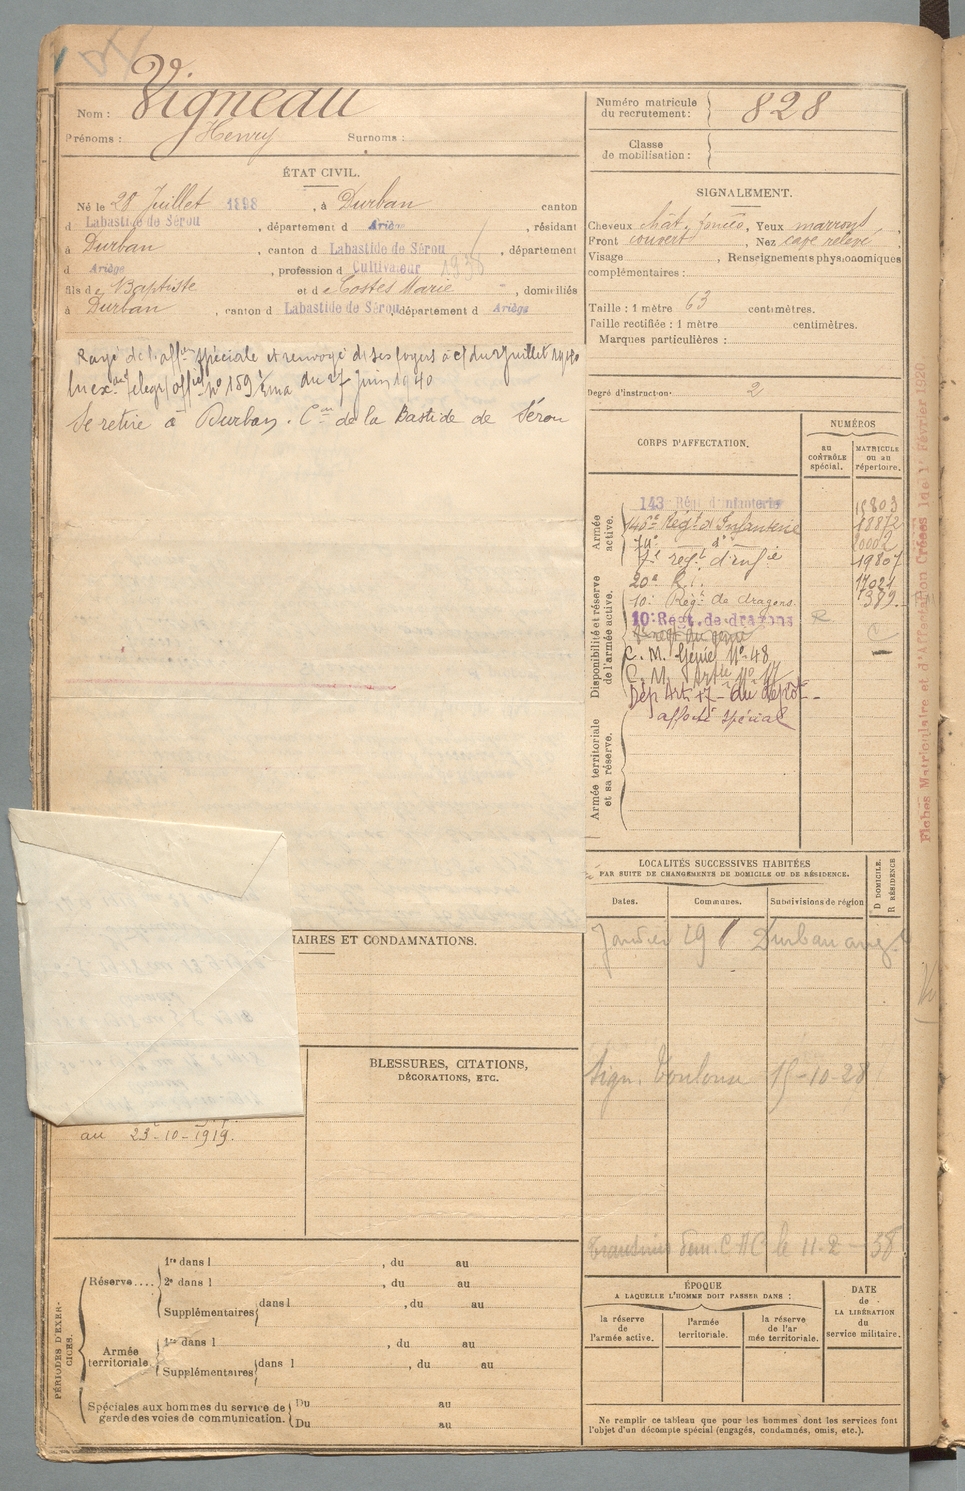 Nom : Vigneau
Prénoms : Henry Surnoms :
ÉTAT CIVIL.
Né le 28 Juillet 1898, à Durban canton
d Labastide de Sérou, département d Ariège, résidant
à Durban, canton d Labastide de Sérou, département
d Ariège, profession d Cultivateur
fils de Baptiste et de Costes Marie, domiciliés
à Durban, canton d Labastide de Sérou, département d Ariège
Rayé de l'aff. spéciale et renvoyé ds ses foyers à c/ du 2 Juillet 1940
du 27 Juin 1940
Se retire à Durban. Con de la Bastide de Sérou
AIRES ET CONDAMNATIONS.
BLESSURES, CITATIONS,
DÉCORATIONS, ETC.
au 23-10-1919.
PÉRIODES D'EXERCICES.
Réserve....
1re dans l , du au
2e dans l , du au
Supplémentaires dans l , du au
Armée territoriale.
1re dans l , du au
Supplémentaires dans l , du au
Spéciales aux hommes du service de garde des voies de communication.
Du au
Du au
Numéro matricule
du recrutement : 828
Classe
de mobilisation :
SIGNALEMENT.
Cheveux chât. foncé, Yeux marrons
Front couvert, Nez cave relevé
Visage , Renseignements physionomiques
complémentaires :
Taille : 1 mètre 63 centimètres.
Taille rectifiée : 1 mètre centimètres.
Marques particulières :
Degré d'instruction. 2
CORPS D'AFFECTATION.
NUMÉROS
au CONTRÔLE spécial.
MATRICULE ou au répertoire.
Armée active.
143 Rég. d'Infanterie
140e Régt d'Infanterie 18872
20002
7e régt d'infie 19807
20e R.I. 17021
Disponibilité et réserve de l'armée active.
10e Régt de dragons. 389
10e Régt. de dragons R
C
C. M. Génie No 48
C. M. Artie No 17
Dép Art. 17 - du dépôt -
affecté spécial
Armée territoriale et sa réserve.
Fiches Matriculaire et d'Affectation Créées le 1er Février 1920
LOCALITÉS SUCCESSIVES HABITÉES
PAR SUITE DE CHANGEMENTS DE DOMICILE OU DE RÉSIDENCE.
Dates. Communes. Subdivisions de région
D DOMICILE.
R RÉSIDENCE
Janvier Durban
Sign. Toulouse 15-10-28
le 11-2-38
ÉPOQUE
A LAQUELLE L'HOMME DOIT PASSER DANS :
la réserve de l'armée active.
l'armée territoriale.
la réserve de l'armée territoriale.
DATE de LA LIBÉRATION du service militaire.
Ne remplir ce tableau que pour les hommes dont les services font
l'objet d'un décompte spécial (engagés, condamnés, omis, etc.).